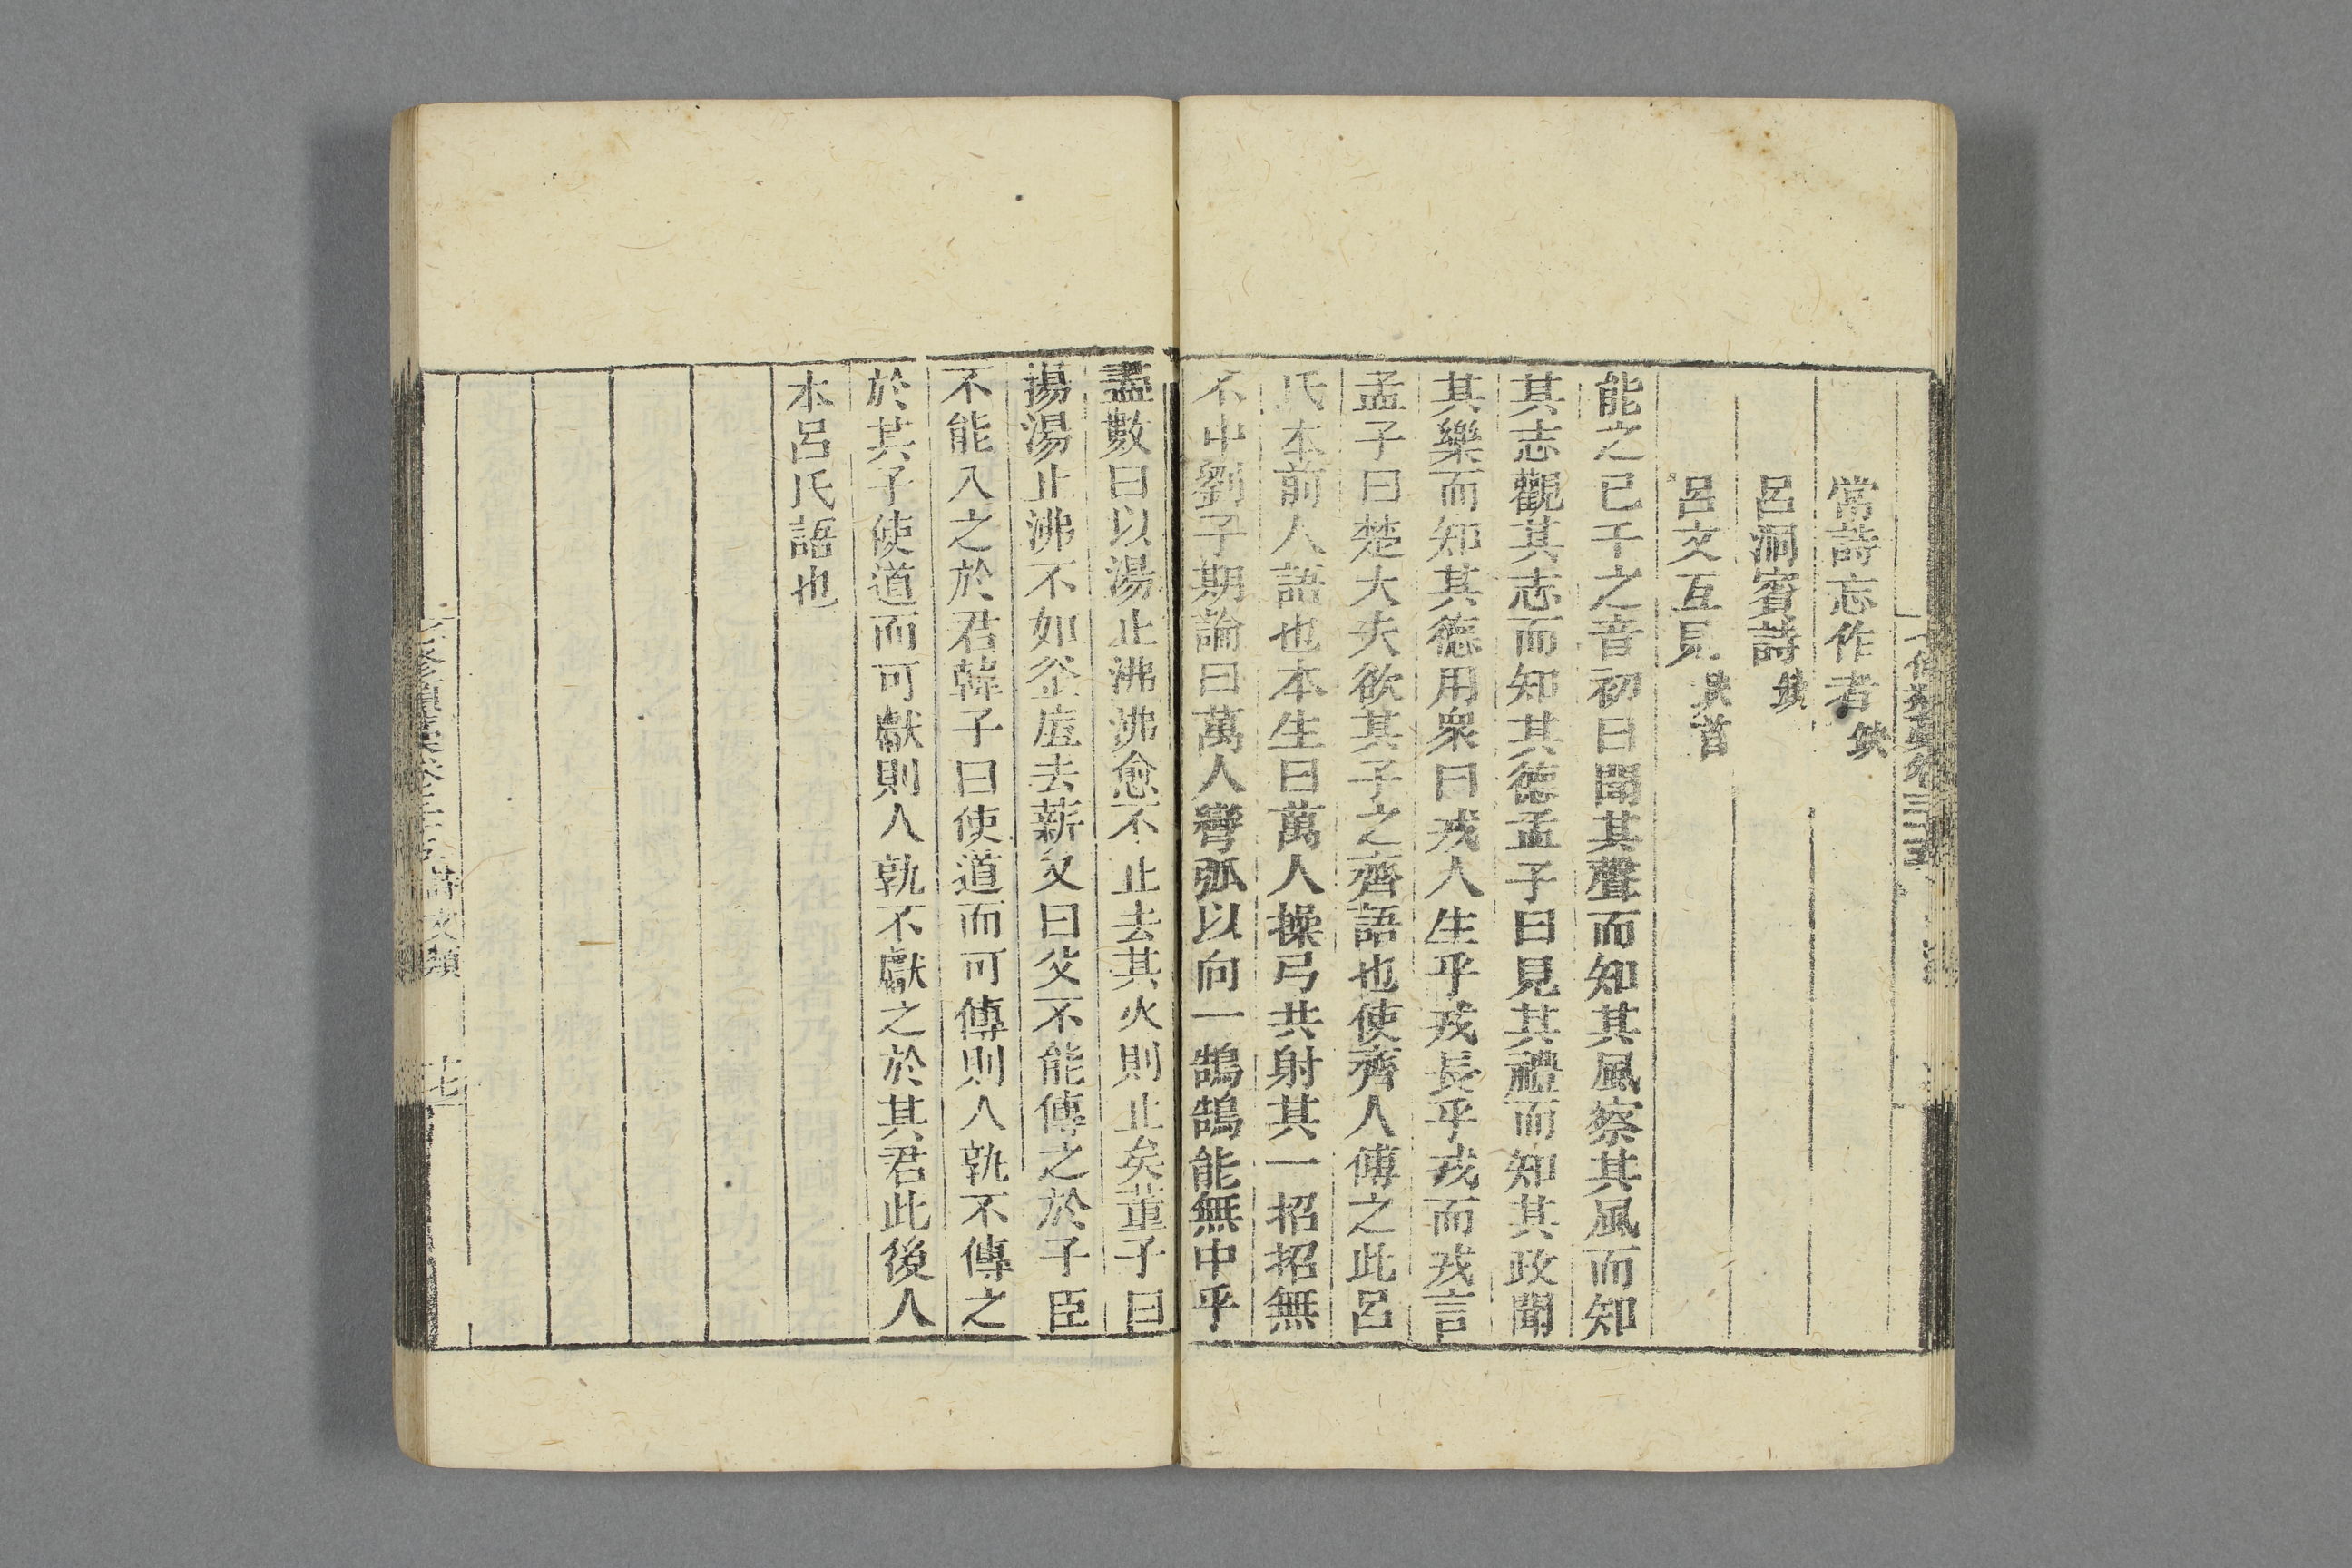 常詩忘作者缺
呂洞賓詩缺
呂文互見缺首
能之已千之音初曰聞其聲而知其風察其風而知
其志觀其志而知其德孟子曰見其禮而知其政聞
其樂而知其德用衆曰戎人生乎戎長乎戎而戎言
孟子曰楚大夫欲其子之齊語也使齊人傅之此呂
氏本前人語也本生曰萬人操弓共射其一招招無
不中劉子期論曰萬人彎弧以向一鵠鵠能無中乎
盡數曰以湯止沸沸愈不止去其火則止矣董子曰
揚湯止沸不如釡底去薪父曰父不能傳之於子臣
不能入之於君韓子曰使道而可傳則人孰不傳之
於其子使道而可獻則人孰不獻之於其君此後人
本呂氏語也
詩文類
十七